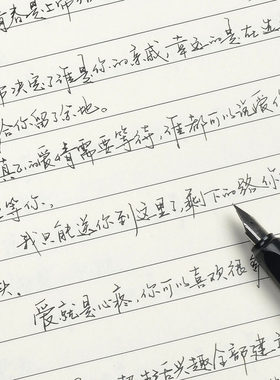 青春是上帝
决定了谁是你的亲戚,幸运的是在选
给你留了余地。
真正的爱情需要等待,谁都可以说爱你
等你。
我只能送你到这里了,剩下的路你
头。
爱就是心疼,你可以喜欢很多
生活兴趣全部建立